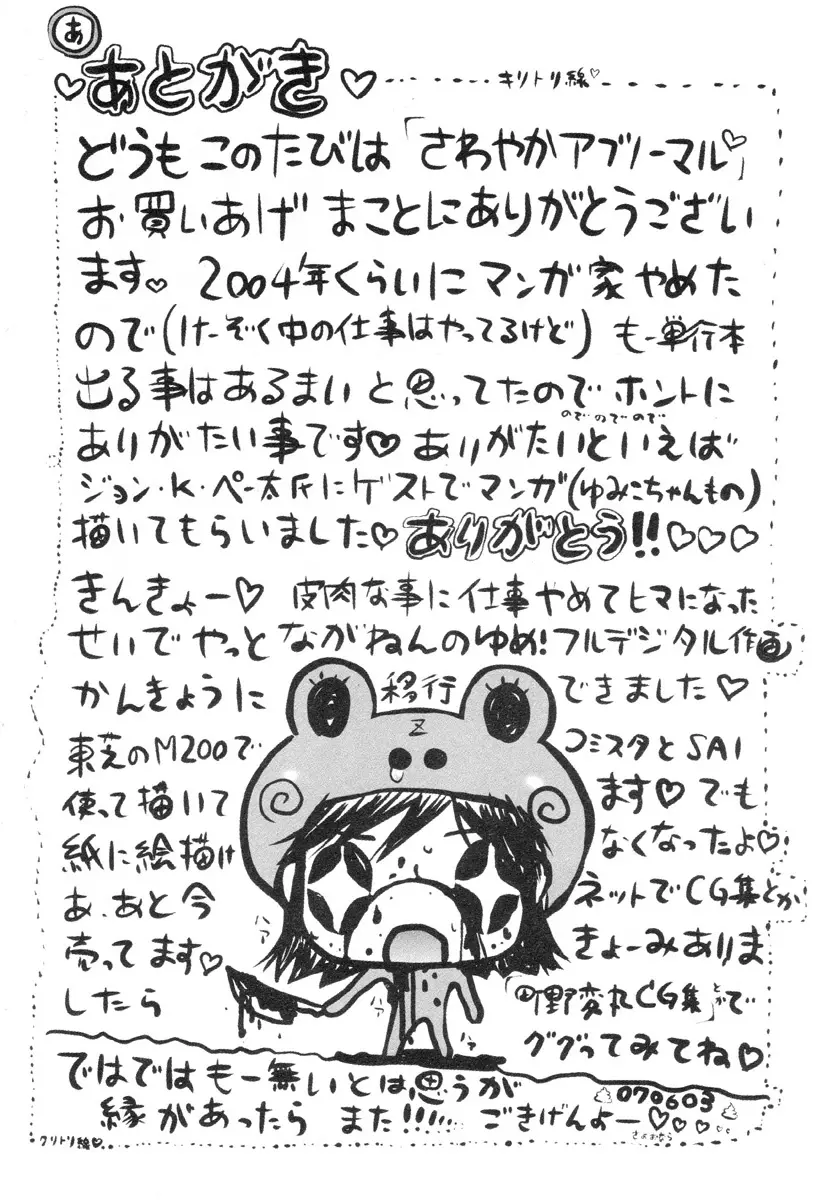 あ
あとがき
キリトリ線
どうも このたびは「さわやかアブノーマル」
お買いあげ まことにありがとうござい
ます 2004年くらいに マンガ家やめた
ので(けーぞく中の仕事はやってるけど) もー単行本
出る事はあるまい と思ってたのでホントに
のでのでので
ありがたい事です ありがたいといえば
ジョン・K・ペー太氏にゲストでマンガ(ゆみこちゃんもの)
描いてもらいました ありがとう!!
きんきょー 皮肉な事に仕事やめてヒマになった
せいで やっと ながねんのゆめ!フルデジタル作画
かんきょうに 移行 できました
Z
東芝のM200で コミスタとSAI
使って描いて ます でも
紙に絵描け なくなったよ
あ、あと今 ネットでCG集とか
売ってます きょーみありま
ハァ
ハァ
ハァ
したら 「町野変丸CG集」とかで
ググってみてね
ではでは もー無いとは思うが
縁があったら また!!!!! ごきげんよー
070603
さよおなら
クリトリ線